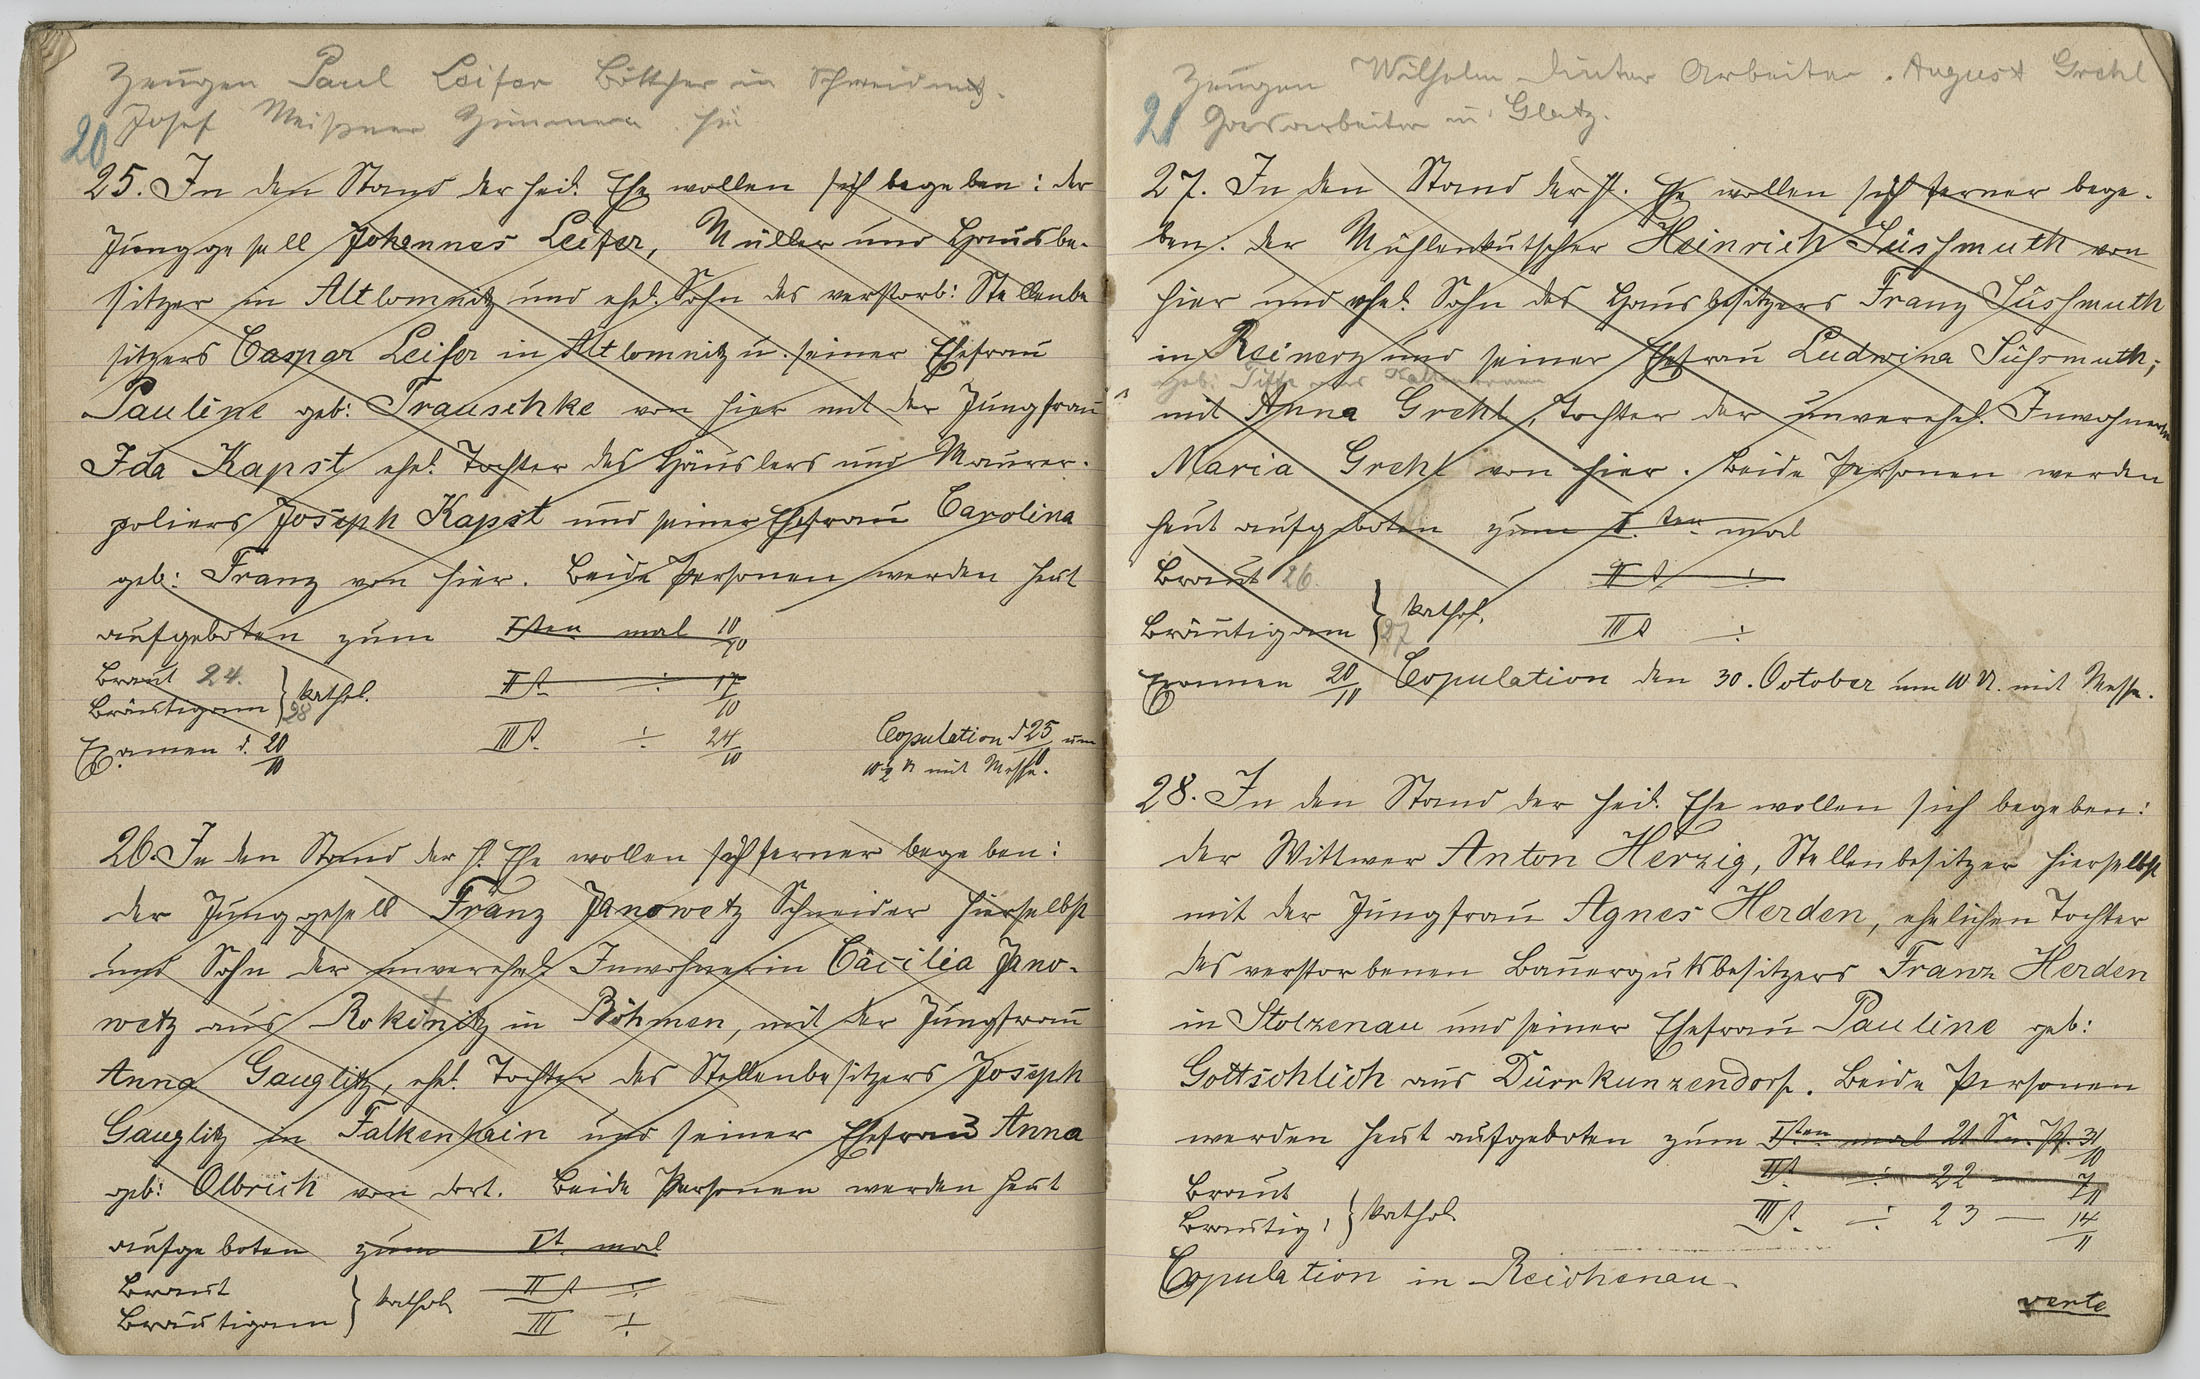 Zeugen Paul Leifer Böttcher in Schweidnitz.
Josef Meißner Zimmerm.
20
25. In den Stand der heil. Ehe wollen sich begeben: der
Junggesell Johannes Leifer, Müller und Hausbe-
sitzer in Altlomnitz und ehel. Sohn des verstorb: Stellenbe
sitzers Caspar Leifer in Altlomnitz u. seiner Ehefrau
Pauline geb: Trauschke von hier mit der Jungfrau
Ida Kapst ehel. Tochter des Häuslers und Maurer-
poliers Joseph Kapst und seiner Ehefrau Carolina
geb: Franz von hier. Beide Personen werden heut
aufgeboten zum Isten mal 10/10
Braut 24. } kathol. II t. ÷ 17/10
Bräutigam 28
Examen d. 20/10 III t. ÷ 24/10 Copulation d 25/10 um
10 ½ U mit Messe.
26. In den Stand der h. Ehe wollen sich ferner begeben:
der Junggesell Franz Janowetz Schneider hierselbst
und Sohn der unverehel. Inwohnerin Cäcilia Jano-
wetz aus Rokitnitz in Böhmen, mit der Jungfrau
Anna Gauglitz, ehel. Tochter des Stellenbesitzers Joseph
Gauglitz in Falkenhein und seiner Ehefrau Anna
geb: Olbrich von dort. Beide Personen werden heut
aufgeboten zum I t. mal
Braut } kathol. II t ÷
Bräutigam III ÷
Zeugen Wilhelm Arbeiter. August Grehl
Gasarbeiter in Glatz.
21
27. In den Stand der h. Ehe wollen sich ferner bege-
ben: der Mühlenkutscher Heinrich Süssmuth von
hier und ehel. Sohn des Hausbesitzers Franz Süssmuth
in Reinerz und seiner Ehefrau Ludwina Süssmuth;
geb: aus
mit Anna Grehl, Tochter der unverehel. Inwohnerin
Maria Grehl von hier. Beide Personen werden
heut aufgeboten zum I. ten mal
Braut 26. II t ÷
Bräutigam 27 } kathol. III t ÷
Examen 20/11 Copulation den 30. October um 10 U. mit Messe.
28. In den Stand der heil. Ehe wollen sich begeben:
der Wittwer Anton Herzig, Stellenbesitzer hierselbst
mit der Jungfrau Agnes Herden, ehelichen Tochter
des verstorbenen Bauergutsbesitzers Franz Herden
in Stolzenau und seiner Ehefrau Pauline geb:
Gottschlich aus Dürrkunzendorf. Beide Personen
werden heut aufgeboten zum Isten mal 21 Sn. Pf. 31/10
Braut II t. ÷ 22 — 7/11
Bräutig: } kathol. III t. ÷ 23 — 14/11
Copulation in Reichenau.
verte